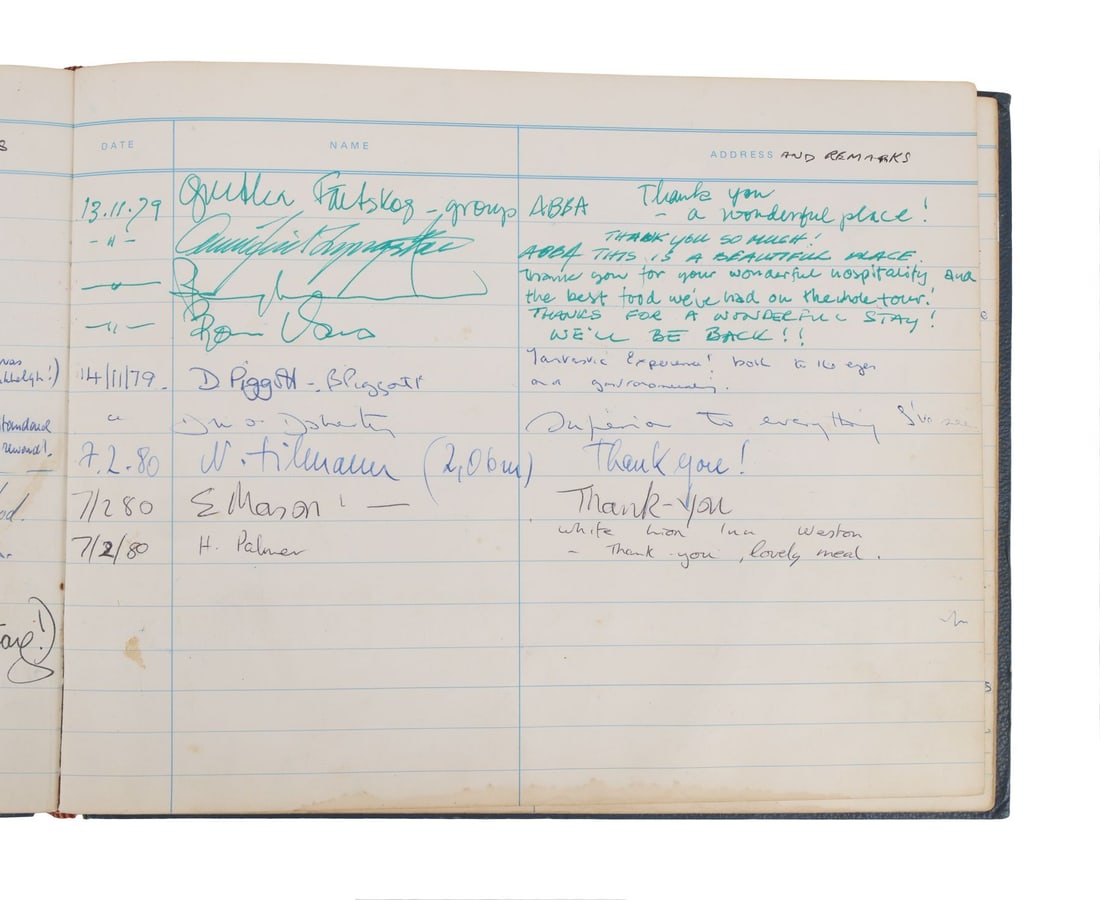 DATE NAME ADDRESS AND REMARKS
13.11.79 Agnetha Fältskog - group ABBA Thank you
- a wonderful place!
- " - THANK YOU SO MUCH!
ABBA THIS IS A BEAUTIFUL PLACE.
Thank you for your wonderful hospitality and
the best food we've had on the whole tour!
- " - THANKS FOR A WONDERFUL STAY!
WE'LL BE BACK!!
14/11/79. D Piggott - B Piggott Fantastic Experience! both to the eyes
and
" Doherty Superior to everything I've
7.2.80 N. Filmann (2,06m) Thank you!
7/2 80 E Mason! — Thank-You
White Lion Inn Weston
7/2/80 H. Palmer - Thank you, lovely meal.